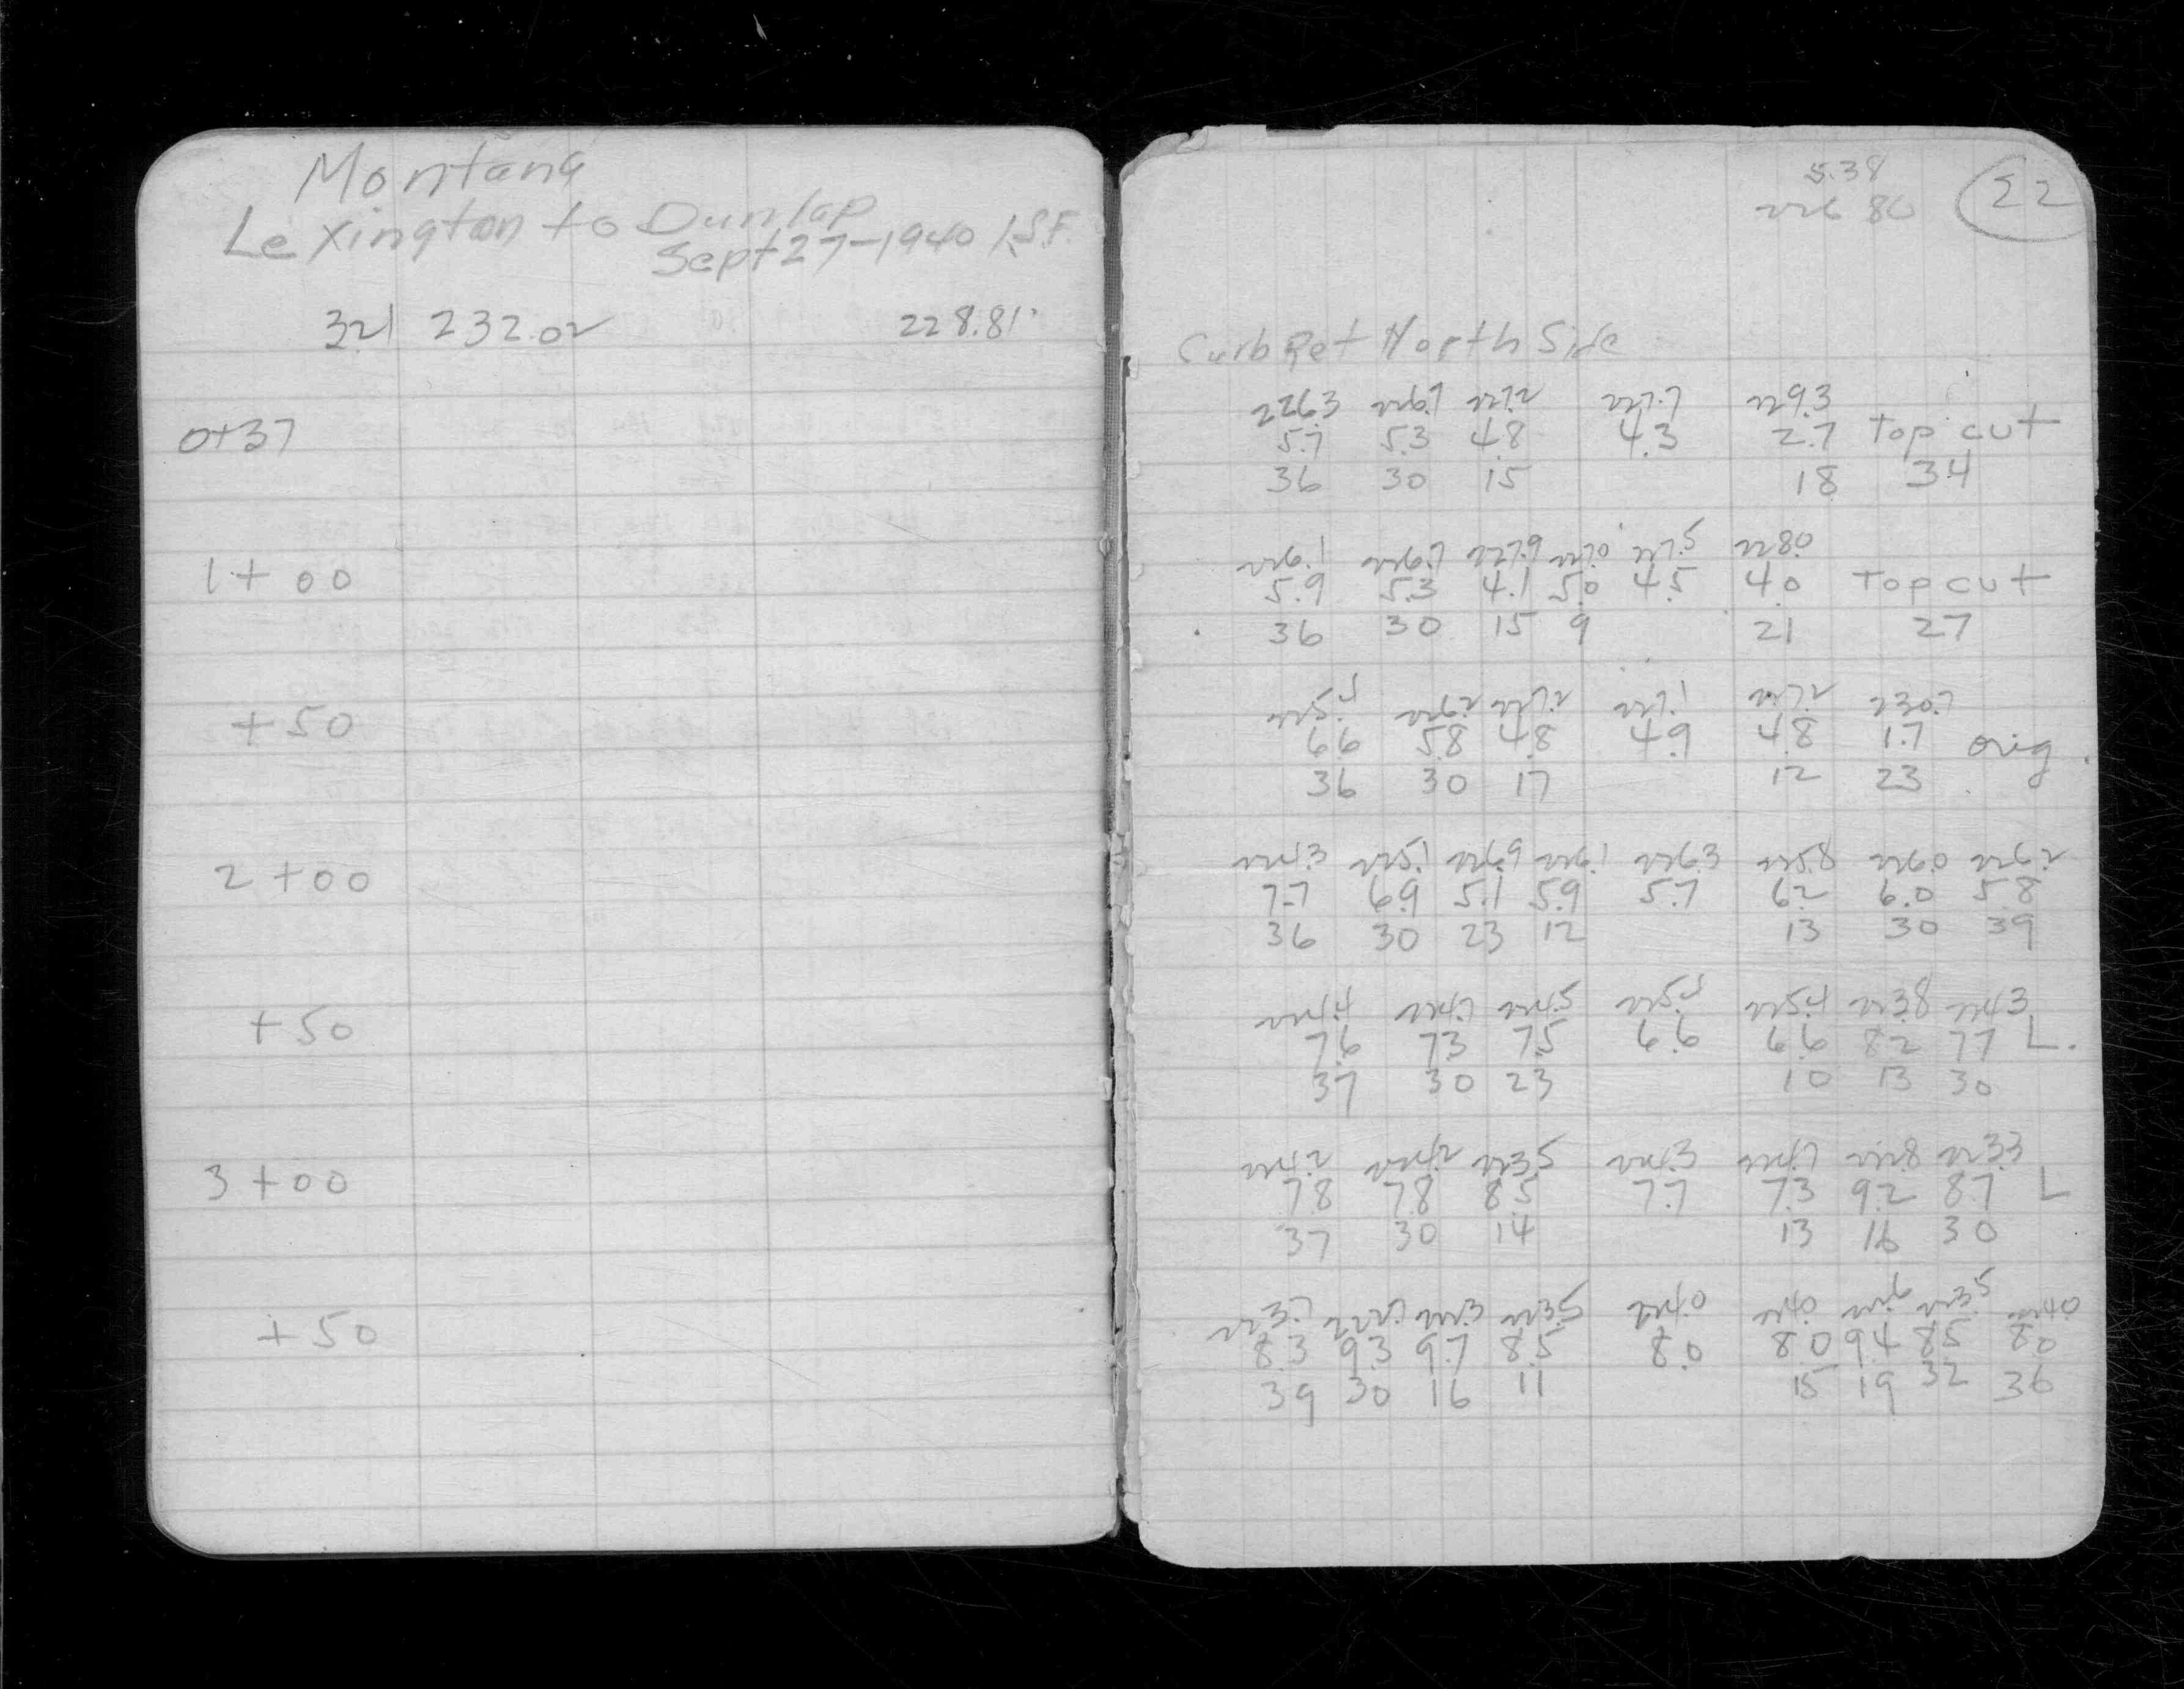 Montana
Lexington to Dunlap
Sept 27-1940 K.S.F.
3.21 232.02 228.81
0+37
1+00
+50
2+00
+50
3+00
+50
5.38
226 80
22
Curb Ret North Side
226.3 226.7 227.2 227.7 229.3
5.7 5.3 4.8 4.3 2.7 Top cut
36 30 15 18 34
226.1 226.7 227.9 227.0 227.5 228.0
5.9 5.3 4.1 5.0 4.5 4.0 Top cut
36 30 15 9 21 27
225.5 226.2 227.2 227.1 227.2 230.7
6.6 5.8 4.8 4.9 4.8 1.7 orig.
36 30 17 12 23
224.3 225.1 226.9 226.1 226.3 225.8 226.0 226.2
7.7 6.9 5.1 5.9 5.7 6.2 6.0 5.8
36 30 23 12 13 30 39
224.4 224.7 224.5 225.5 225.4 223.8 224.3
7.6 7.3 7.5 6.6 6.6 8.2 7.7 L.
37 30 23 10 13 30
224.2 224.2 223.5 224.3 224.7 222.8 223.3
7.8 7.8 8.5 7.7 7.3 9.2 8.7 L
37 30 14 13 16 30
223.7 222.7 222.3 223.5 224.0 224.0 222.6 223.5 224.0
8.3 9.3 9.7 8.5 8.0 8.0 9.4 8.5 8.0
39 30 16 11 15 19 32 36